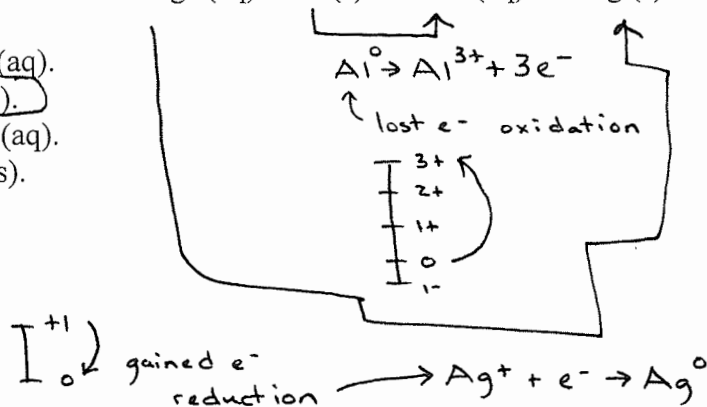 (aq).
Al⁰ → Al³⁺ + 3e⁻
).
lost e⁻ oxidation
(aq).
s).
3+
2+
1+
0
1-
+1
0
gained e⁻
reduction
Ag⁺ + e⁻ → Ag⁰